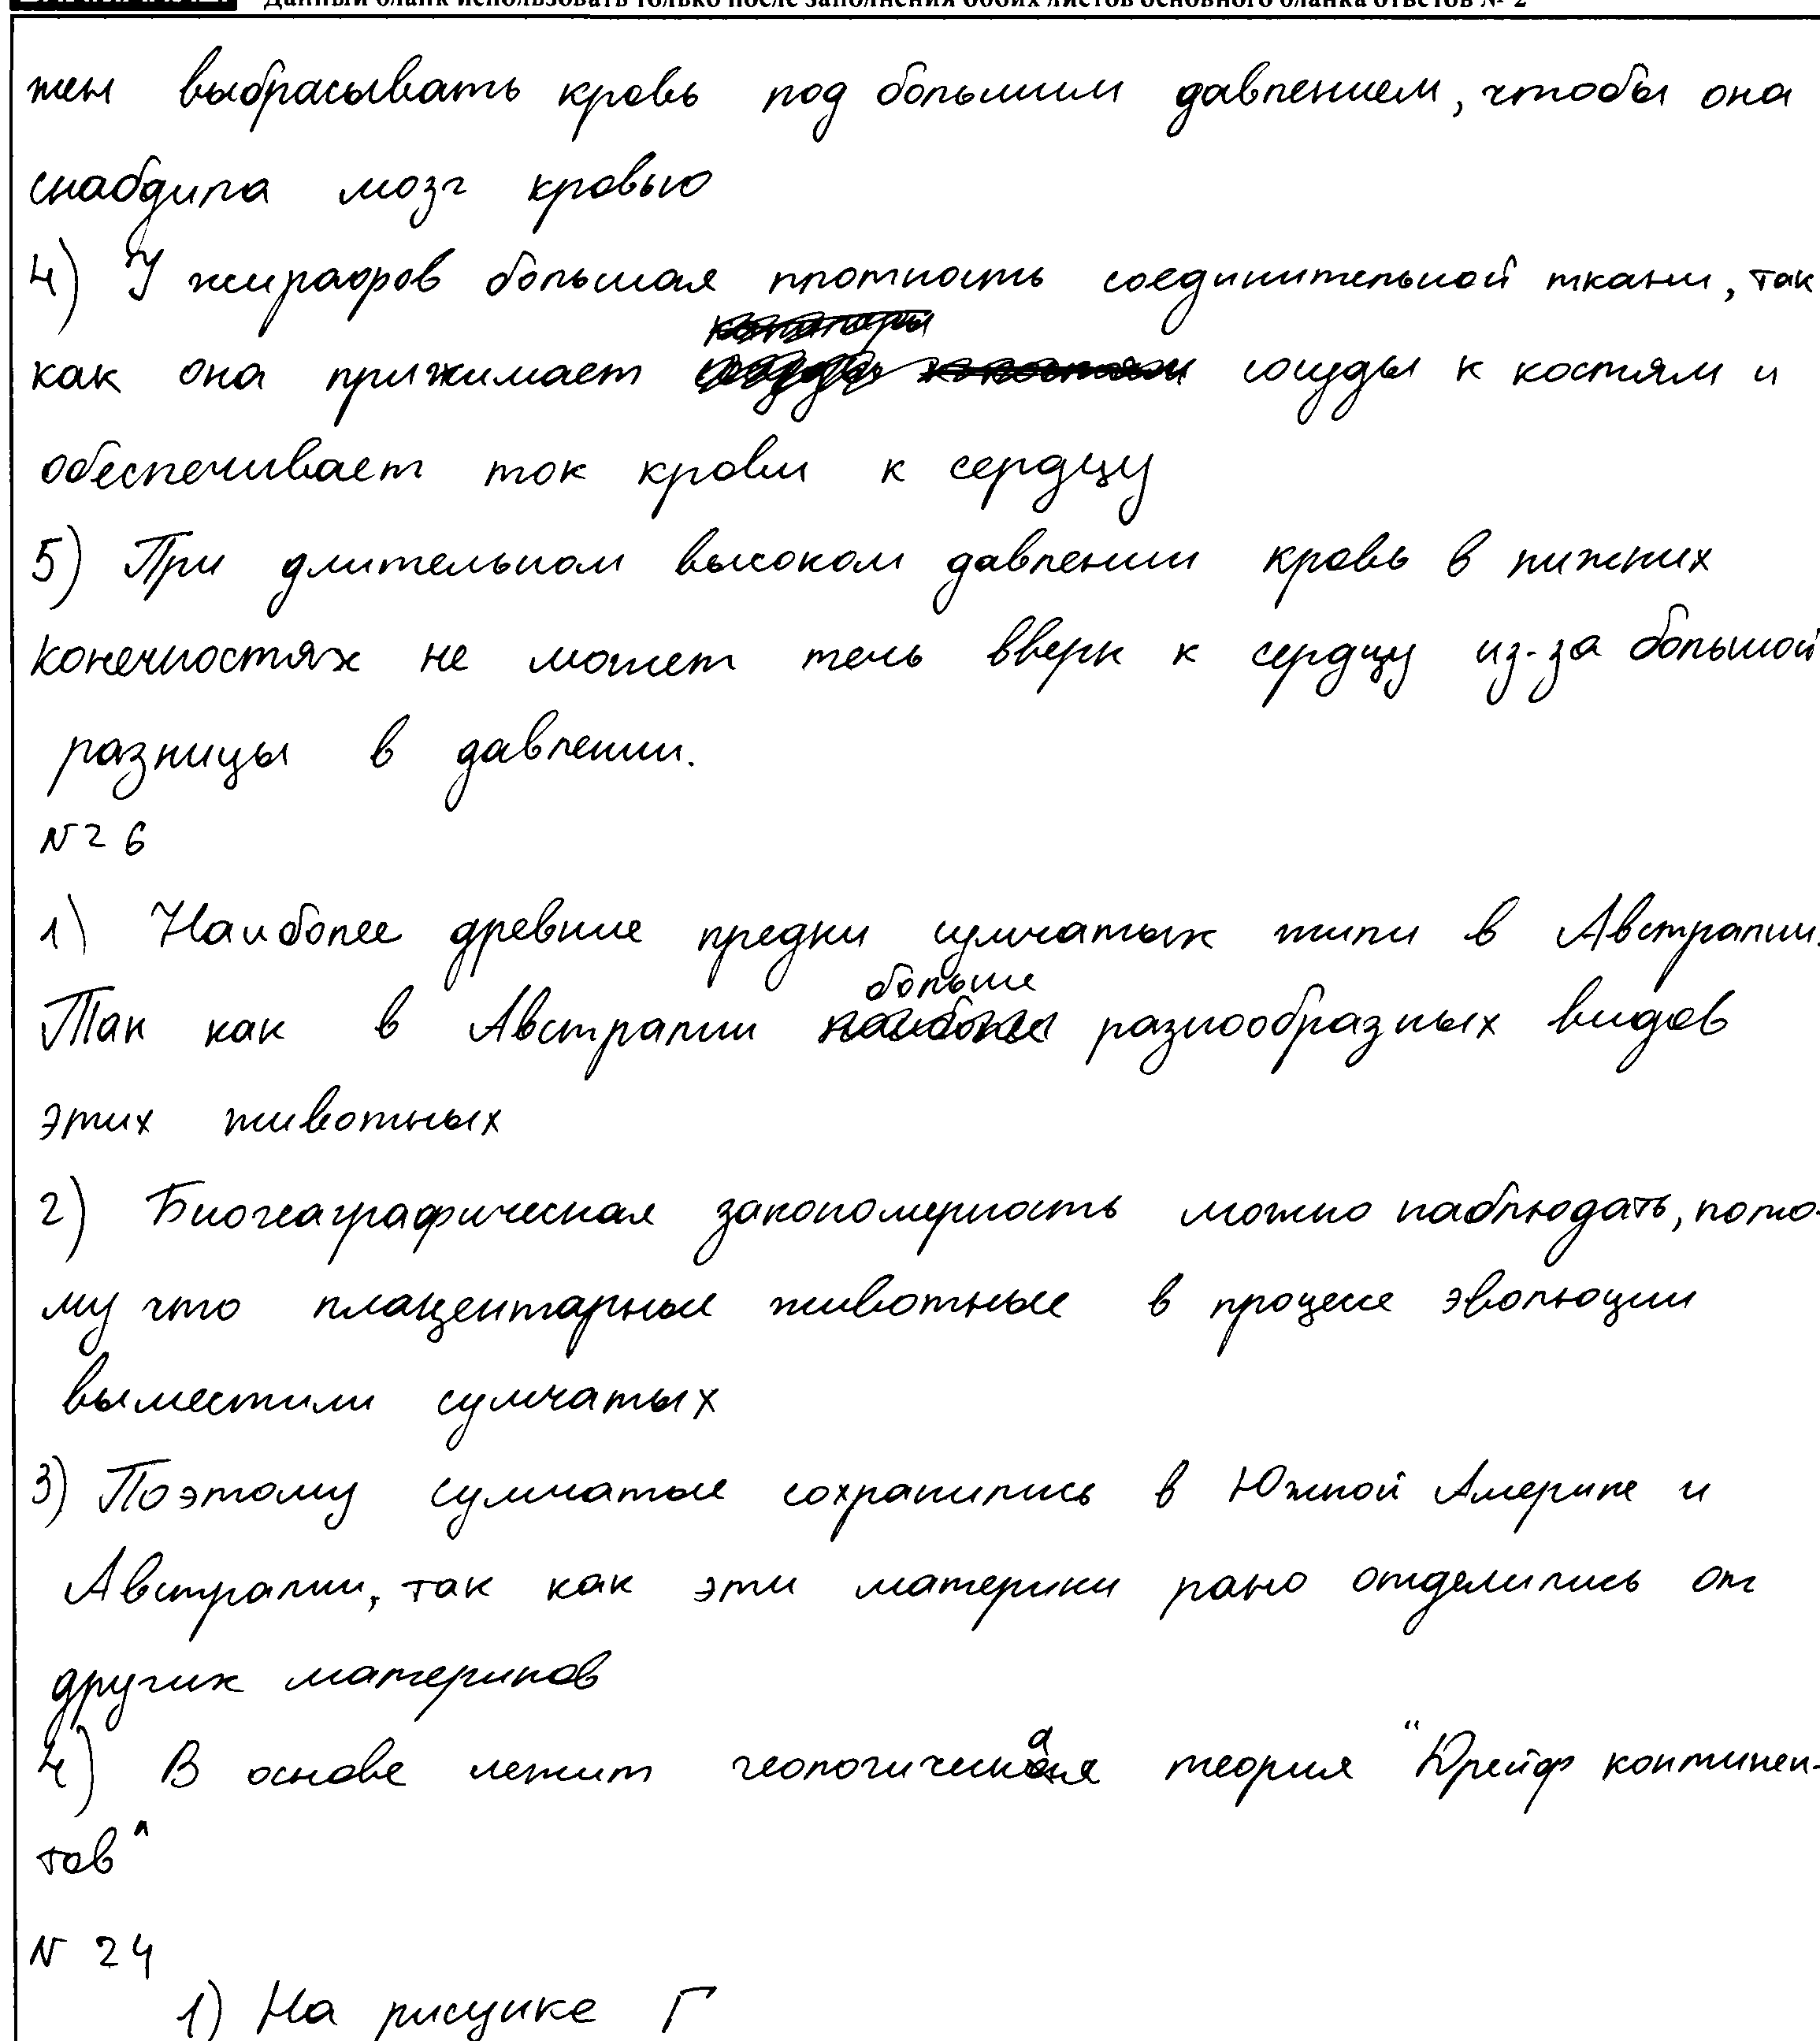 Данный бланк использовать только после заполнения обоих листов основного бланка ответов № 2
жен выбрасывать кровь под большим давлением, чтобы она
снабдила мозг кровью
4) У жирафов большая плотность соединительной ткани, так
как она прижимает сосуды к костям и
обеспечивает ток крови к сердцу
5) При длительном высоком давлении кровь в нижних
конечностях не может течь вверх к сердцу из-за большой
разницы в давлении.
N26
1) Наиболее древние предки сумчатых жили в Австралии.
больше
Так как в Австралии разнообразных видов
этих животных
2) Биогеаграфическая закономерность можно наблюдать, пото-
му что плацентарные животные в процессе эволюции
выместили сумчатых
3) Поэтому сумчатые сохранились в Южной Америке и
Австралии, так как эти материки рано отделились от
других материков
4) В основе лежит геологическая теория "Дрейф континен-
тов"
N 24
1) На рисунке Г